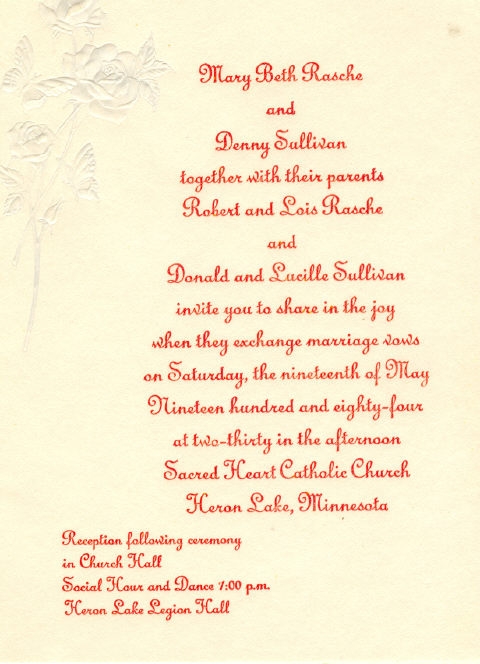 Mary Beth Rasche
and
Denny Sullivan
together with their parents
Robert and Lois Rasche
and
Donald and Lucille Sullivan
invite you to share in the joy
when they exchange marriage vows
on Saturday, the nineteenth of May
Nineteen hundred and eighty-four
at two-thirty in the afternoon
Sacred Heart Catholic Church
Heron Lake, Minnesota
Reception following ceremony
in Church Hall
Social Hour and Dance 7:00 p.m.
Heron Lake Legion Hall